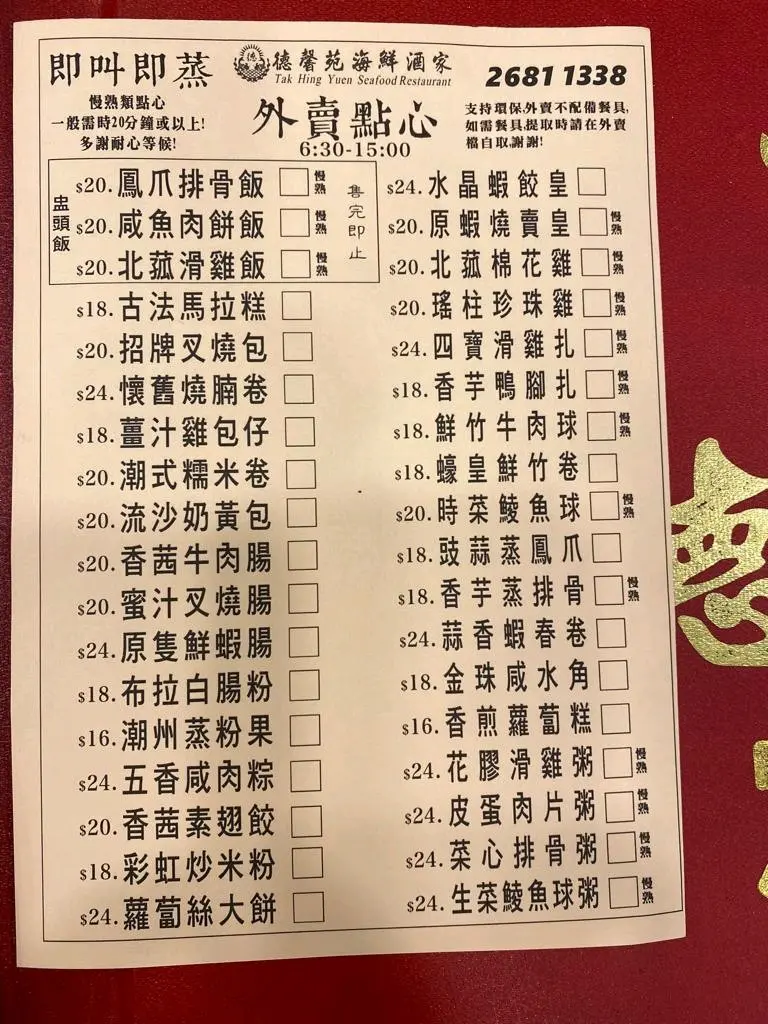 即叫即蒸
慢熟類點心
一般需時20分鐘或以上!
多謝耐心等候!
德馨苑海鮮酒家
Tak Hing Yuen Seafood Restaurant
外賣點心
6:30-15:00
2681 1338
支持環保,外賣不配備餐具,
如需餐具,提取時請在外賣
檔自取,謝謝!
盅頭飯
$20. 鳳爪排骨飯 慢熟
$20. 咸魚肉餅飯 慢熟
$20. 北菰滑雞飯 慢熟
售完即止
$18. 古法馬拉糕
$20. 招牌叉燒包
$24. 懷舊燒腩卷
$18. 薑汁雞包仔
$20. 潮式糯米卷
$20. 流沙奶黃包
$20. 香茜牛肉腸
$20. 蜜汁叉燒腸
$24. 原隻鮮蝦腸
$18. 布拉白腸粉
$16. 潮州蒸粉果
$24. 五香咸肉粽
$20. 香茜素翅餃
$18. 彩虹炒米粉
$24. 蘿蔔絲大餅
$24. 水晶蝦餃皇
$20. 原蝦燒賣皇 慢熟
$20. 北菰棉花雞 慢熟
$20. 瑤柱珍珠雞 慢熟
$24. 四寶滑雞扎 慢熟
$18. 香芋鴨腳扎 慢熟
$18. 鮮竹牛肉球 慢熟
$18. 蠔皇鮮竹卷
$20. 時菜鯪魚球 慢熟
$18. 豉蒜蒸鳳爪
$18. 香芋蒸排骨 慢熟
$24. 蒜香蝦春卷
$18. 金珠咸水角
$16. 香煎蘿蔔糕
$24. 花膠滑雞粥 慢熟
$24. 皮蛋肉片粥 慢熟
$24. 菜心排骨粥 慢熟
$24. 生菜鯪魚球粥 慢熟